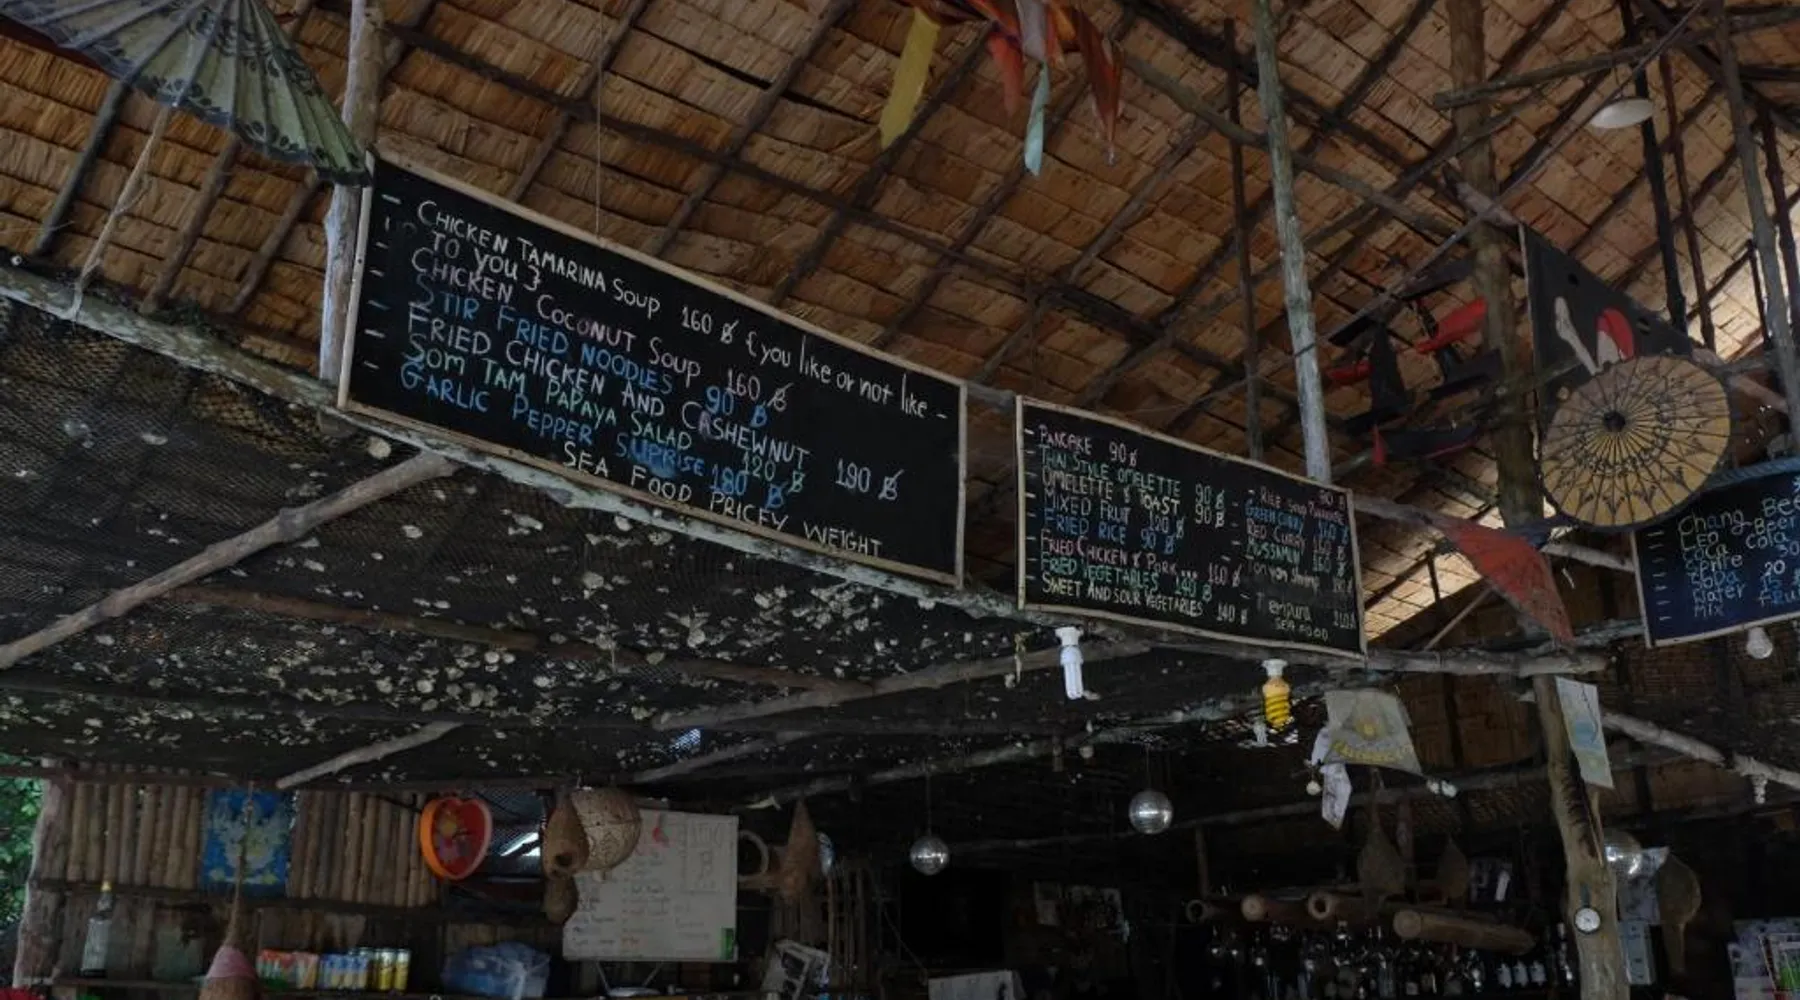 - CHICKEN TAMARINA SOUP 160 ฿ {you like or not like -
TO YOU }
- CHICKEN COCONUT SOUP 160 ฿
- STIR FRIED NOODLES 90 ฿
- FRIED CHICKEN AND CASHEWNUT 190 ฿
- SOM TAM PAPAYA SALAD 120 ฿
- GARLIC PEPPER SUPRISE 180 ฿
SEA FOOD PRICEY WEIGHT
- PANCAKE 90 ฿
- THAI STYLE OMELETTE 90 ฿
- OMELETTE & TOAST 90 ฿
- MIXED FRUIT 120 ฿
- FRIED RICE 90 ฿
- FRIED CHICKEN & PORK... 160 ฿
- FRIED VEGETABLES 140 ฿
- SWEET AND SOUR VEGETABLES 140 ฿
- RICE SOUP 90 ฿
- GREEN CURRY 160 ฿
- RED CURRY 160 ฿
- MUSSAMUN 160 ฿
- Tempura
SEA FOOD
- Chang Beer
- LEO Beer
- Coca Cola
- Sprite 30
- SODA 20
- Water
- Mix